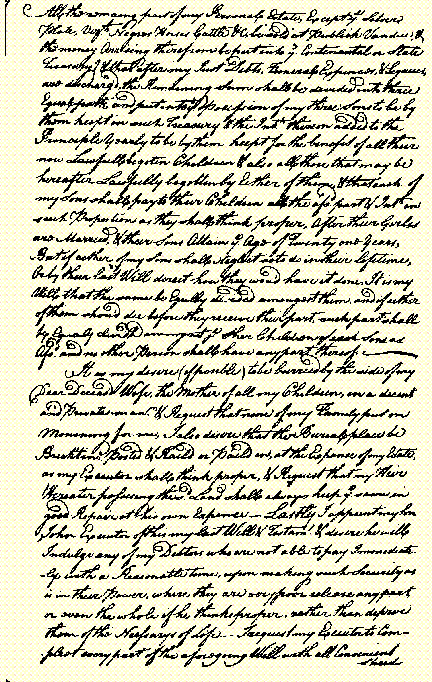 All the remaining part of my Personal Estate, Except yᵉ Silver
Plate, Negroes Horses Cattle & to be sold at Publick Vandue, &
the money Arriseing therefrom be put into yᵉ Continental or State
Treasury, & then after my Just Debts, Funeral Expences, & Legacies
are discharged, the Remaining Sum shall be divided into three
Equal parts, and put into yᵉ possession of my three Sons to be by
them kept in such Treasury & the Intᵗ thereon added to the
Principle Yearly to be by them kept for the benefit of all their
now Lawfully begotten Children & also all them that may be
hereafter Lawfully begotten by Either of them, & that each of
my Sons shall pay to their Children all the afsᵈ part & Intᵗ in
such Proportion as they shall think proper, After their Girles
are Married, & their Sons Attain yᵉ Age of Twenty one Years,
But if either of my Sons shall Neglect to do in their lifetime,
Or by their Last Will direct how they would have it done, It is my
Will, that the same be Equally divided amongst them, and if either
of them should die before they receive their part, such part shall
be Equaly divided amongst yᵉ other Children of such Son as
Afsᵈ, and no other Person shall have any part thereof.
It is my desire (if possible) to be burried by the side of my
Dear Deceasd Wife, the Mother of all my Children, in a decent
and Private manʳ & Request that none of my Family put on
Mourning for me, I also desire that the Burial place be
Bricktend, Posted & Raild or Paild in, at the Expense of my Estate,
as my Executor shall think proper, & Request that my Heir
hereafter possessing this Land shall always keep yᵉ same in
good Repair at his own Expence - Lastly I appoint my Son
John Executor of this my Last Will & Testamᵗ & desire he will
Indulge any of my Debtors who are not able to pay Immediate-
-ly with a Reasonable time, upon making such Security as
is in their Power, where they are very poor release any part
or even the whole if he thinks proper, rather than deprive
them of the Nessarys of Life - I request my Executor to Com-
pleat every part of the aforegoing Will with all Convenient
speed